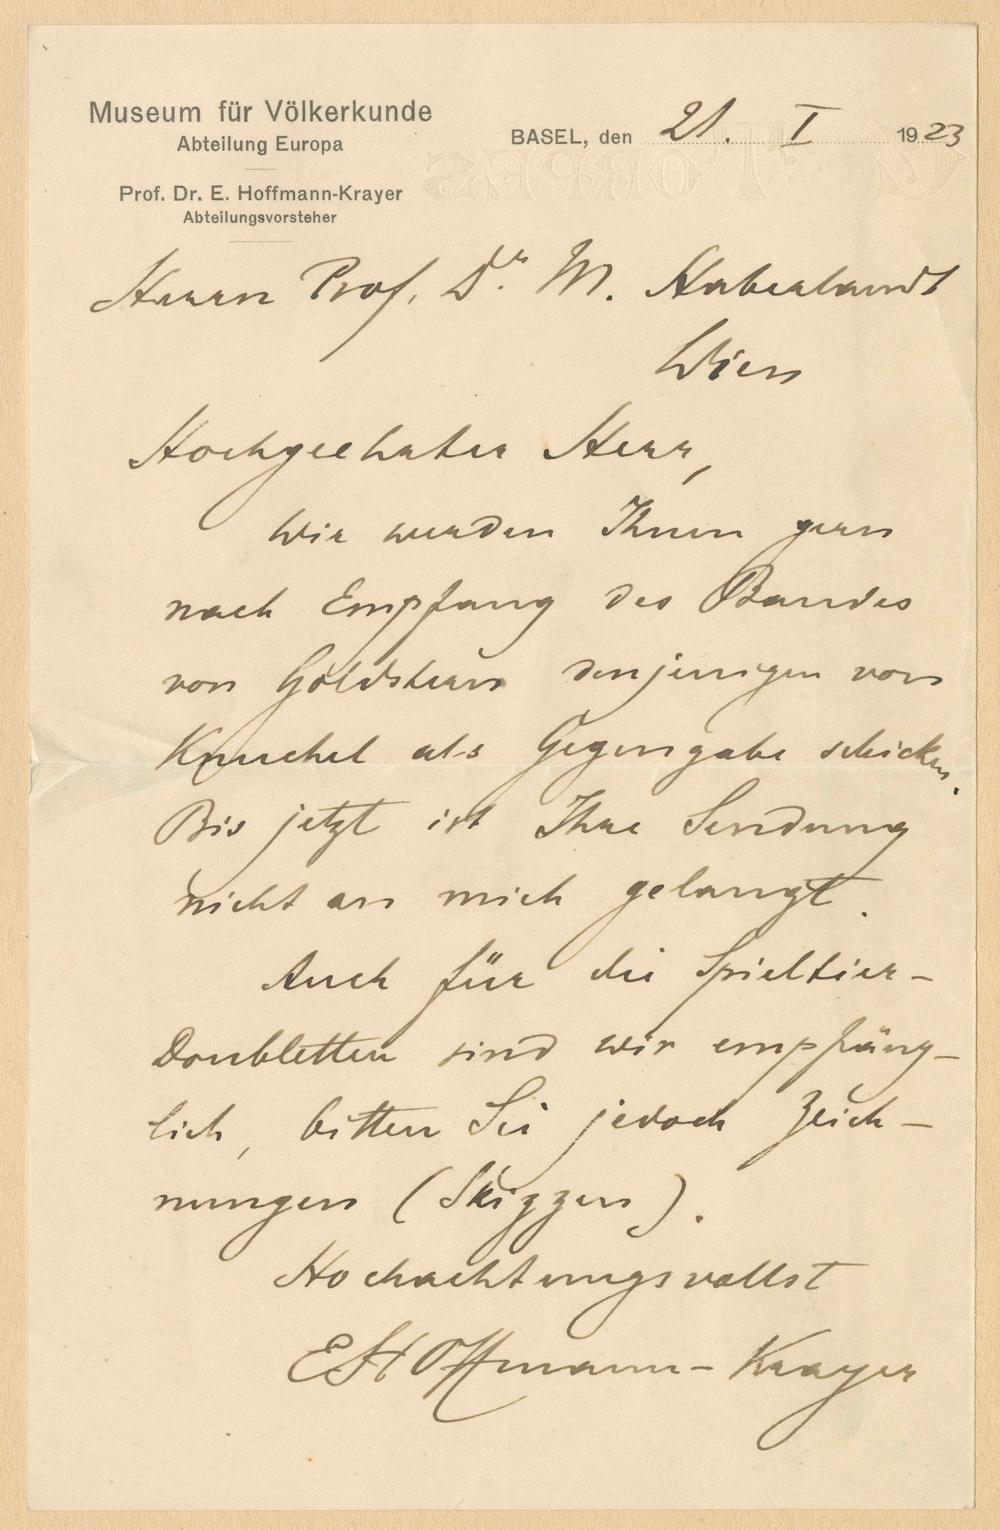 Museum für Völkerkunde
Abteilung Europa
Prof. Dr. E. Hoffmann-Krayer
Abteilungsvorsteher
BASEL, den 21. I 1923
Herrn Prof. Dr. M. Haberlandt
Wien
Hochgeehrter Herr,
Wir werden Ihnen gern
nach Empfang des Bandes
von Goldstern denjenigen von
Knuchel als Gegengabe schicken.
Bis jetzt ist Ihre Sendung
nicht an mich gelangt.
Auch für die Spieltier-
Doubletten sind wir empfäng-
lich, bitten Sie jedoch Zeich-
nungen (Skizzen).
Hochachtungsvollst
E Hoffmann-Krayer